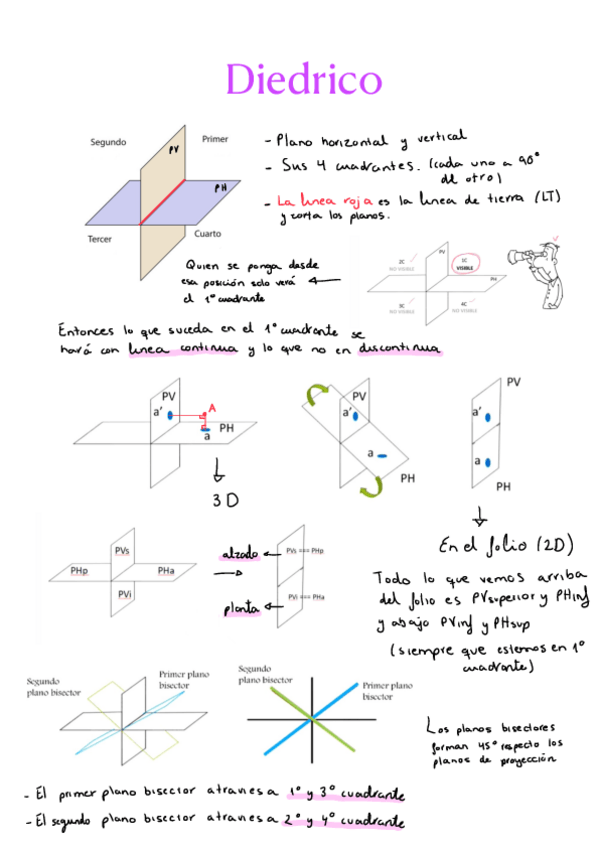 Diedrico
Segundo
Primer
PV
PH
Tercer
Cuarto
- Plano horizontal y vertical
- Sus 4 cuadrantes. (cada uno a 90°
del otro)
- La linea roja es la linea de tierra (LT)
y corta los planos.
Quien se ponga desde
esa posición solo verá
el 1º cuadrante
2C
NO VISIBLE
PV
1C
VISIBLE
PH
3C
NO VISIBLE
4C
NO VISIBLE
Entonces lo que suceda en el 1º cuadrante se
hará con linea continua y lo que no en discontinua
PV
a'
A
PH
a
3D
PV
a'
a
PH
PV
a'
a
PH
En el folio (2D)
PVs
PHp
PHa
PVi
alzado
PVs === PHp
planta
PVi === PHa
Todo lo que vemos arriba
del folio es PVsuperior y PHinf
y abajo PVinf y PHsup
(siempre que estemos en 1º
cuadrante)
Segundo
plano bisector
Primer plano
bisector
Segundo
plano bisector
Primer plano
bisector
Los planos bisectores
forman 45º respecto los
planos de proyección
- El primer plano bisector atraviesa 1º y 3º cuadrante
- El segundo plano bisector atraviesa 2º y 4º cuadrante